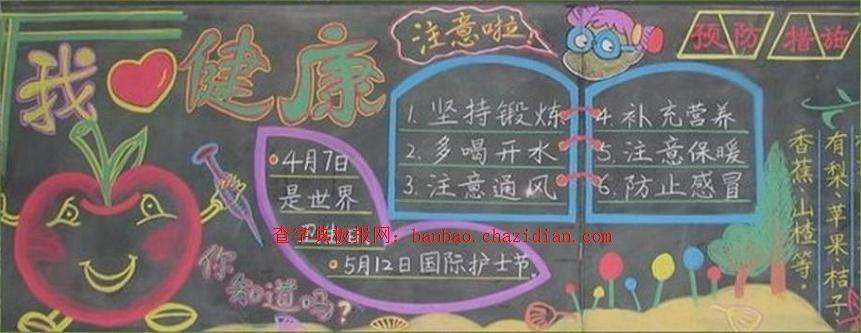 我 健康
注意啦！
预防措施
1. 坚持锻炼
2. 多喝开水
3. 注意通风
4. 补充营养
5. 注意保暖
6. 防止感冒
4月7日
是世界
5月12日国际护士节
你知道吗？
有梨 苹果 桔子
香蕉 山楂等。
查字典板报网：banbao.chazidian.com